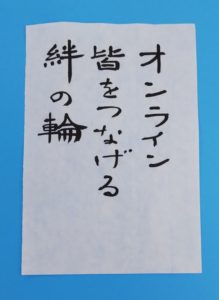 オンライン
皆をつなげる
絆の輪